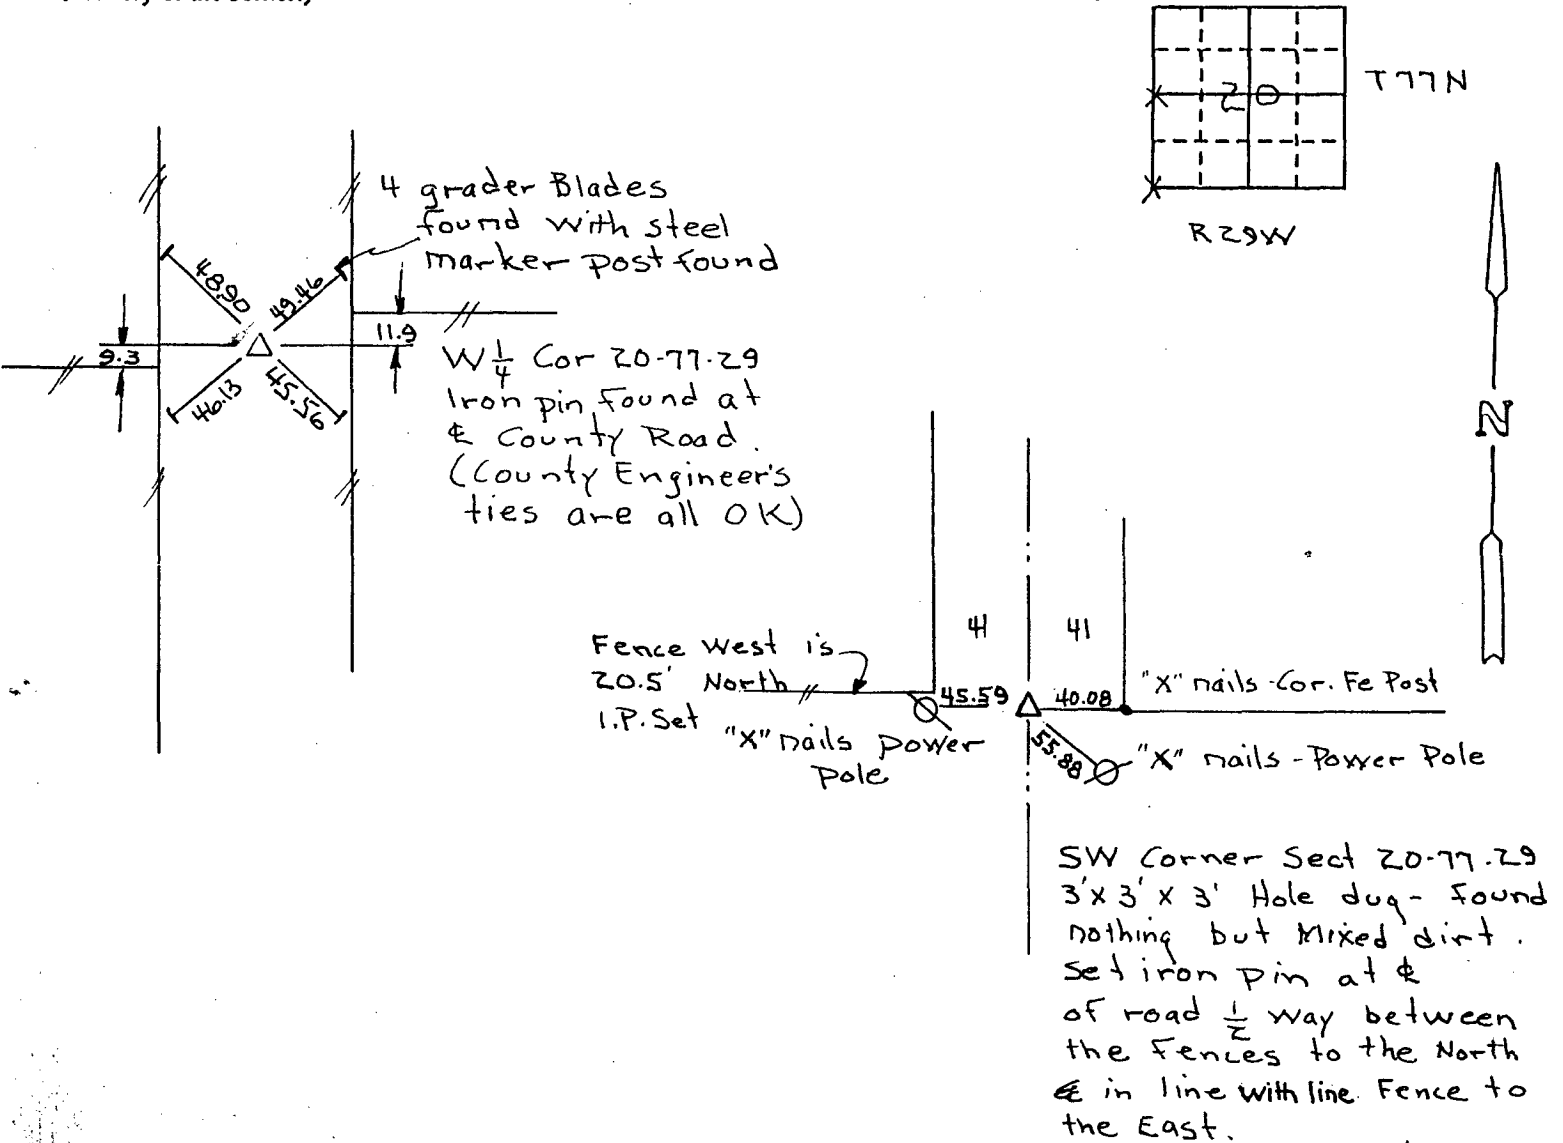 20
T77N
R29W
4 grader Blades
found with steel
marker post found
48.90
49.46
9.3
11.9
46.13
45.56
W 1/4 Cor 20-77-29
Iron pin found at
℄ County Road.
(County Engineer's
ties are all OK)
N
41
41
Fence West is
20.5' North
I.P. Set
45.59
40.08
55.88
"X" nails power
pole
"X" nails - Cor. Fe Post
"X" nails - Power Pole
SW Corner Sect 20-77-29
3' x 3' x 3' Hole dug - found
nothing but Mixed dirt.
Set iron pin at ℄
of road 1/2 way between
the Fences to the North
& in line with line Fence to
the East.